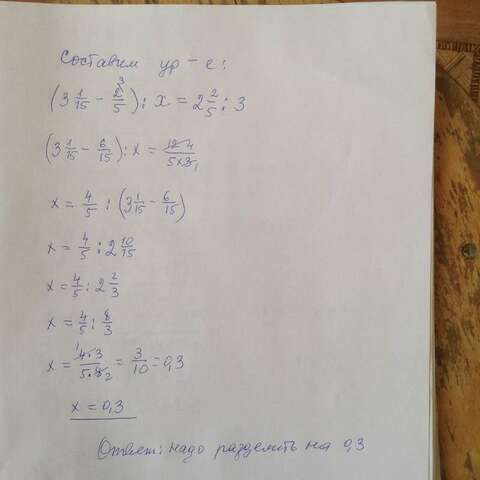 Составим ур-е:
(3 1/15 - 2/5 ³) : x = 2 2/5 : 3
(3 1/15 - 6/15) : x = 12 4/5×3 1
x = 4/5 : (3 1/15 - 6/15)
x = 4/5 : 2 10/15
x = 4/5 : 2 2/3
x = 4/5 : 8/3
x = 1 4·3/5·8 2 = 3/10 = 0,3
x = 0,3
Ответ: надо разделить на 0,3